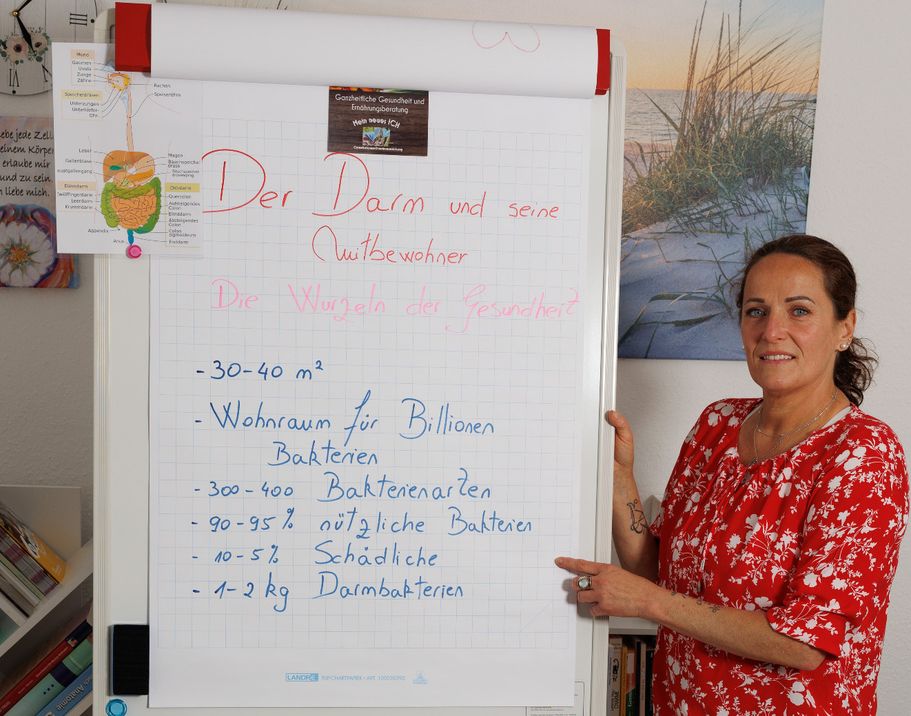 Ganzheitliche Gesundheit und
Ernährungsberatung
Mein neues ICH
Der Darm und seine
Mitbewohner
Die Wurzeln der Gesundheit
- 30-40 m²
- Wohnraum für Billionen
Bakterien
- 300-400 Bakterienarten
- 90-95% nützliche Bakterien
- 10-5% Schädliche
- 1-2 kg Darmbakterien
Mund
Gaumen
Uvula
Zunge
Zähne
Rachen
Speiseröhre
Speicheldrüsen
Leber
Gallenblase
Magen
Dünndarm
Dickdarm
Appendix
Anus
jede Zell
Körper
erlaube mir
und zu sein
liebe mich.
LANDRÉ
Anatomie